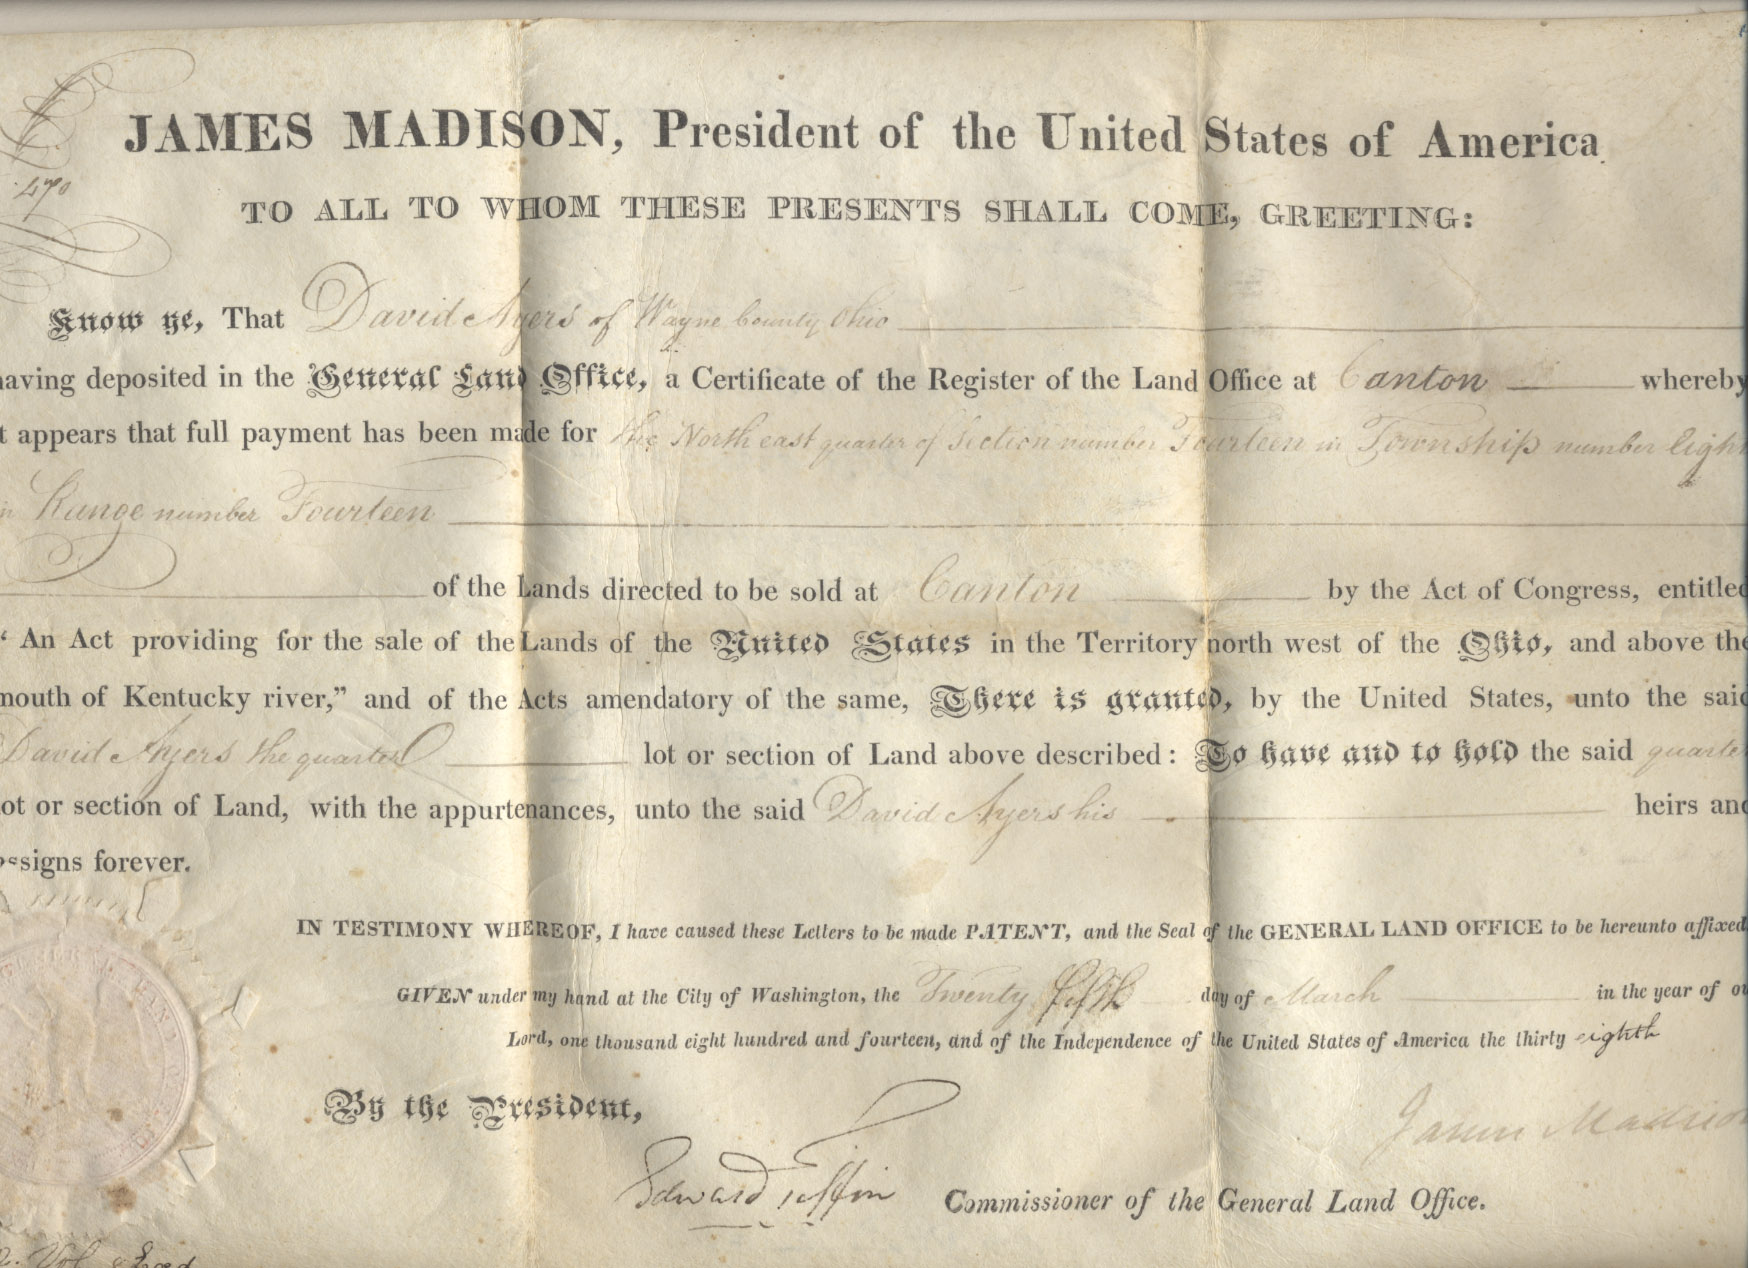 470
JAMES MADISON, President of the United States of America
TO ALL TO WHOM THESE PRESENTS SHALL COME, GREETING:
Know ye, That David Ayers of Wayne County Ohio
having deposited in the General Land Office, a Certificate of the Register of the Land Office at Canton whereby
t appears that full payment has been made for the North east quarter of Section number Fourteen in Township number Eight
in Range number Fourteen
of the Lands directed to be sold at Canton by the Act of Congress, entitled
“ An Act providing for the sale of the Lands of the United States in the Territory north west of the Ohio, and above the
mouth of Kentucky river,” and of the Acts amendatory of the same, There is granted, by the United States, unto the said
David Ayers the quarter lot or section of Land above described: To have and to hold the said quarter
lot or section of Land, with the appurtenances, unto the said David Ayers his heirs and
assigns forever.
IN TESTIMONY WHEREOF, I have caused these Letters to be made PATENT, and the Seal of the GENERAL LAND OFFICE to be hereunto affixed
GIVEN under my hand at the City of Washington, the Twenty fifth day of March in the year of ou
Lord, one thousand eight hundred and fourteen, and of the Independence of the United States of America the thirty eighth
By the President,
James Madison
Edward Tiffin Commissioner of the General Land Office.
Vol